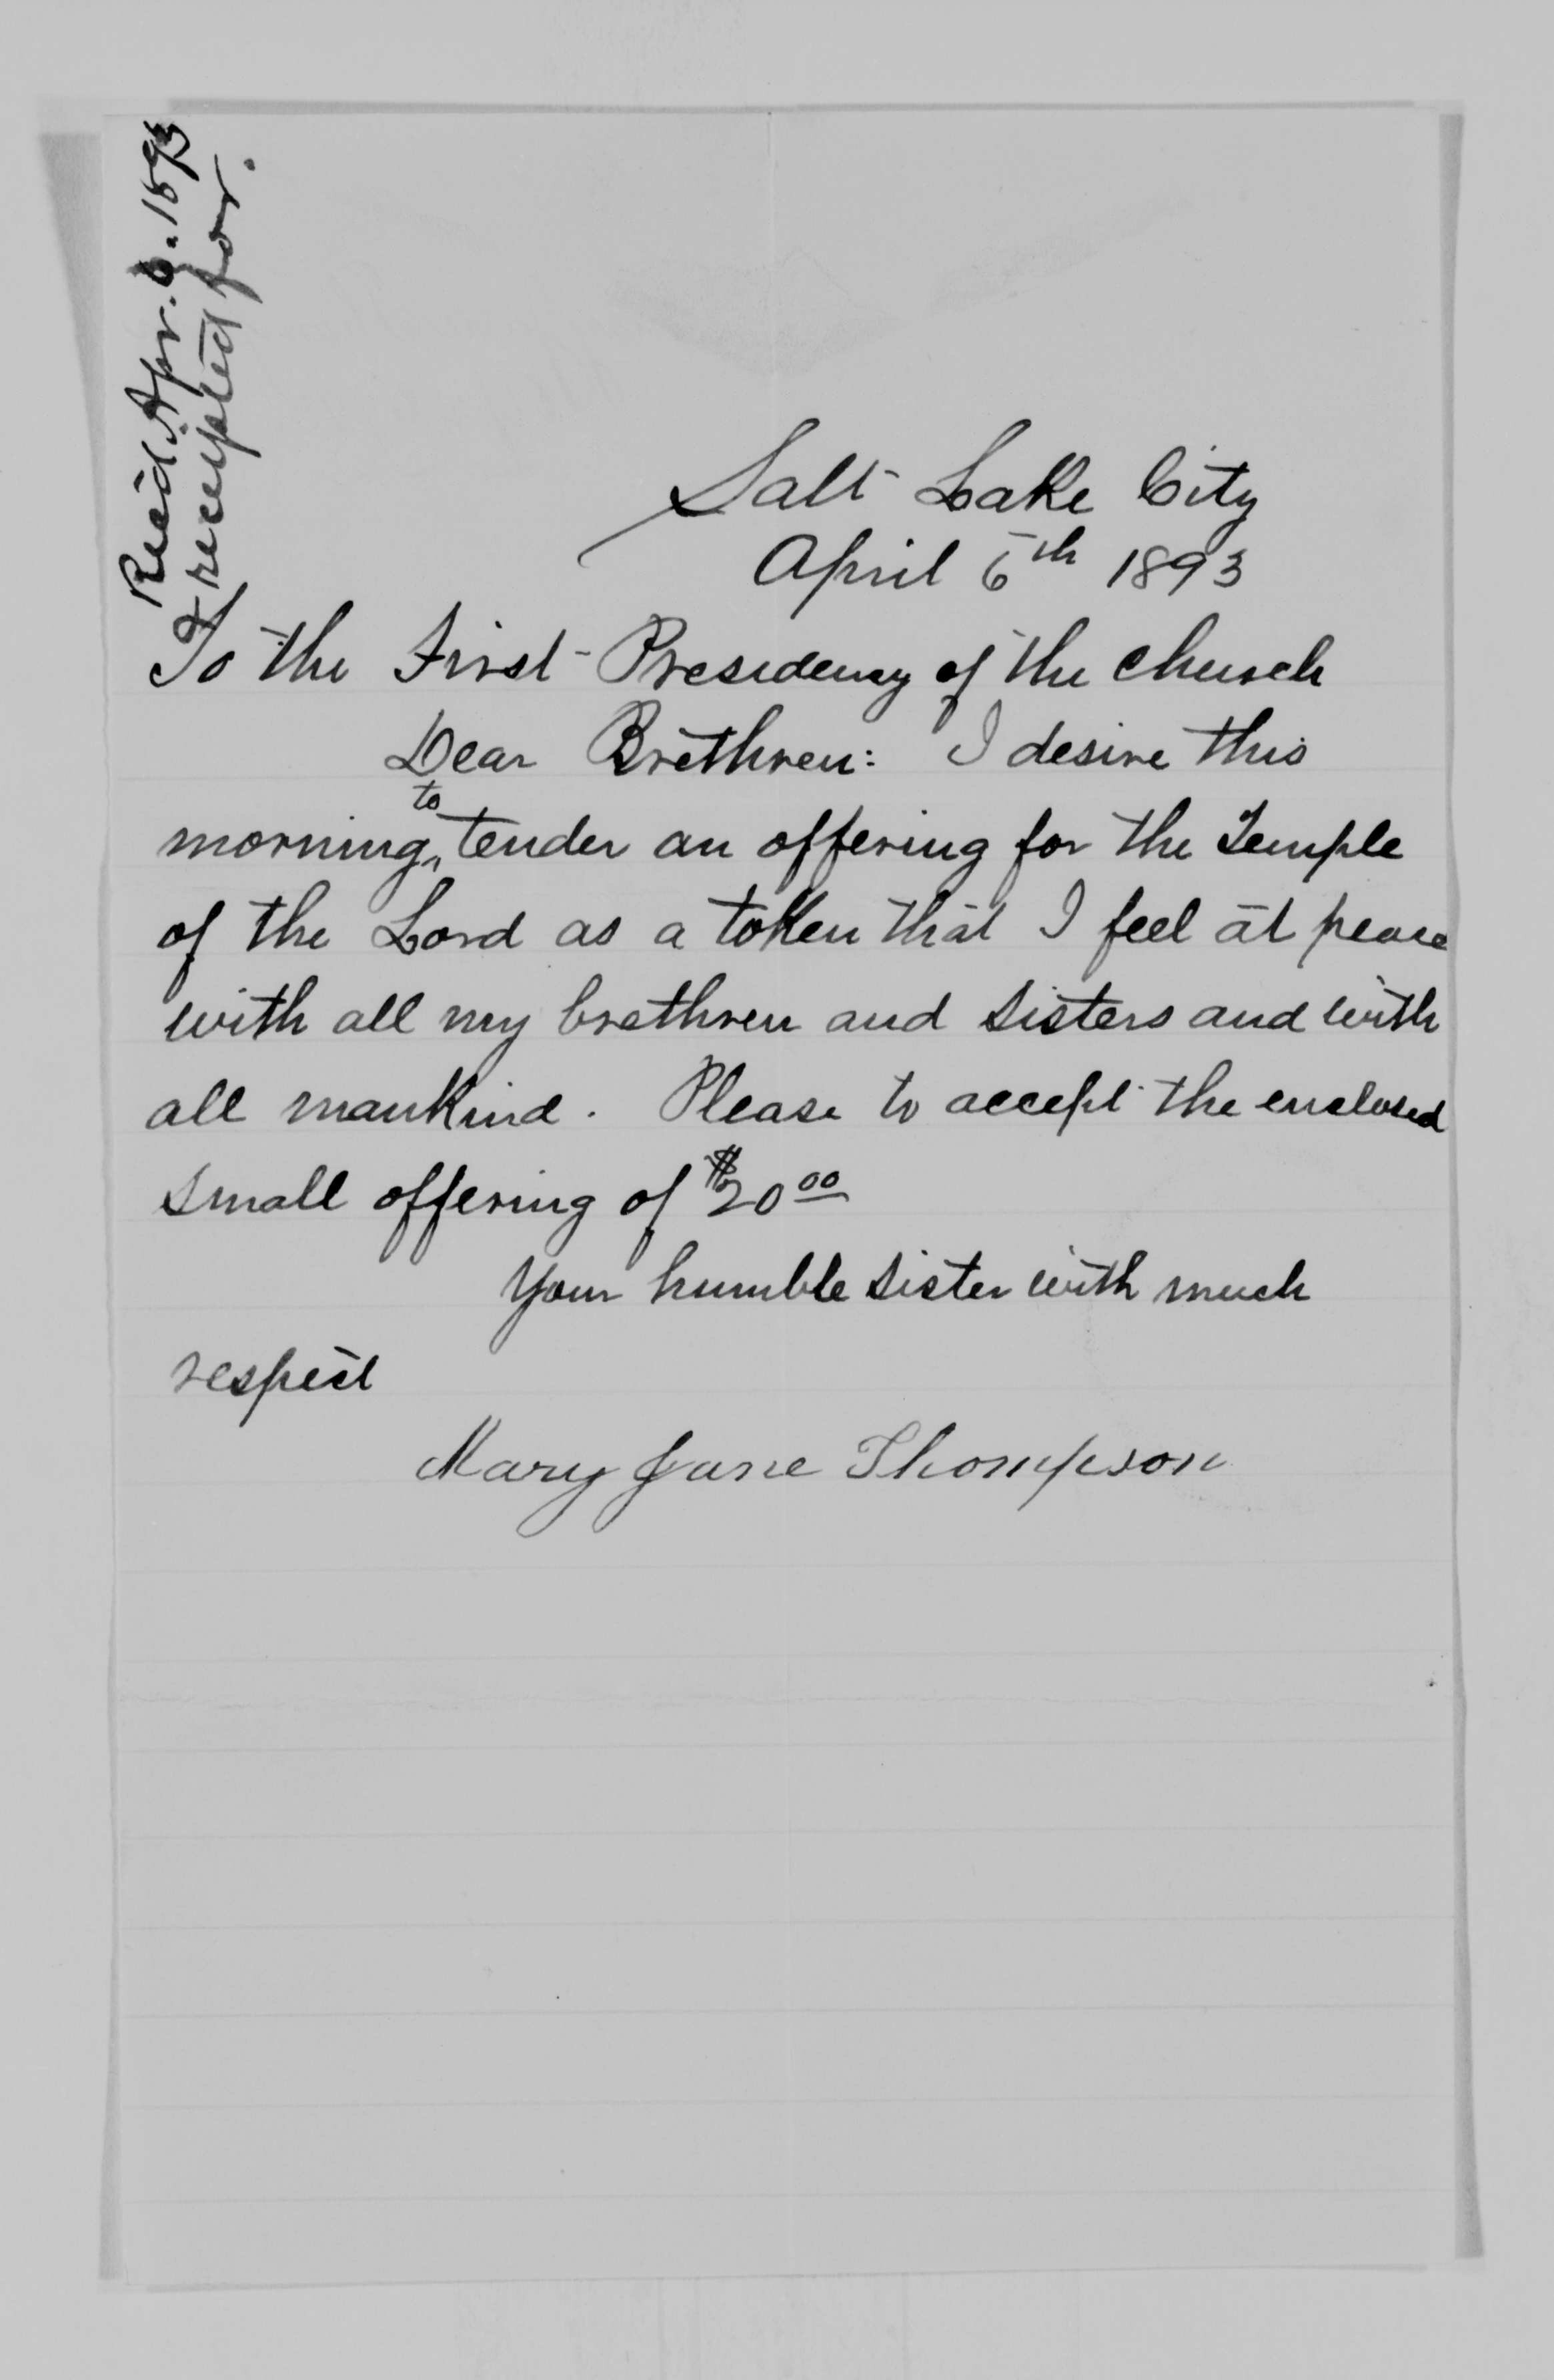 Recd. Apr. 6. 1893
& receipted for.
Salt Lake City
April 6th 1893
To the First Presidency of the Church
Dear Brethren: I desire this
to
morning ‸ tender an offering for the Temple
of the Lord as a token that I feel at peace
with all my brethren and sisters and with
all mankind. Please to accept the enclosed
small offering of $20 00
Your humble sister with much
respect
Mary Jane Thompson